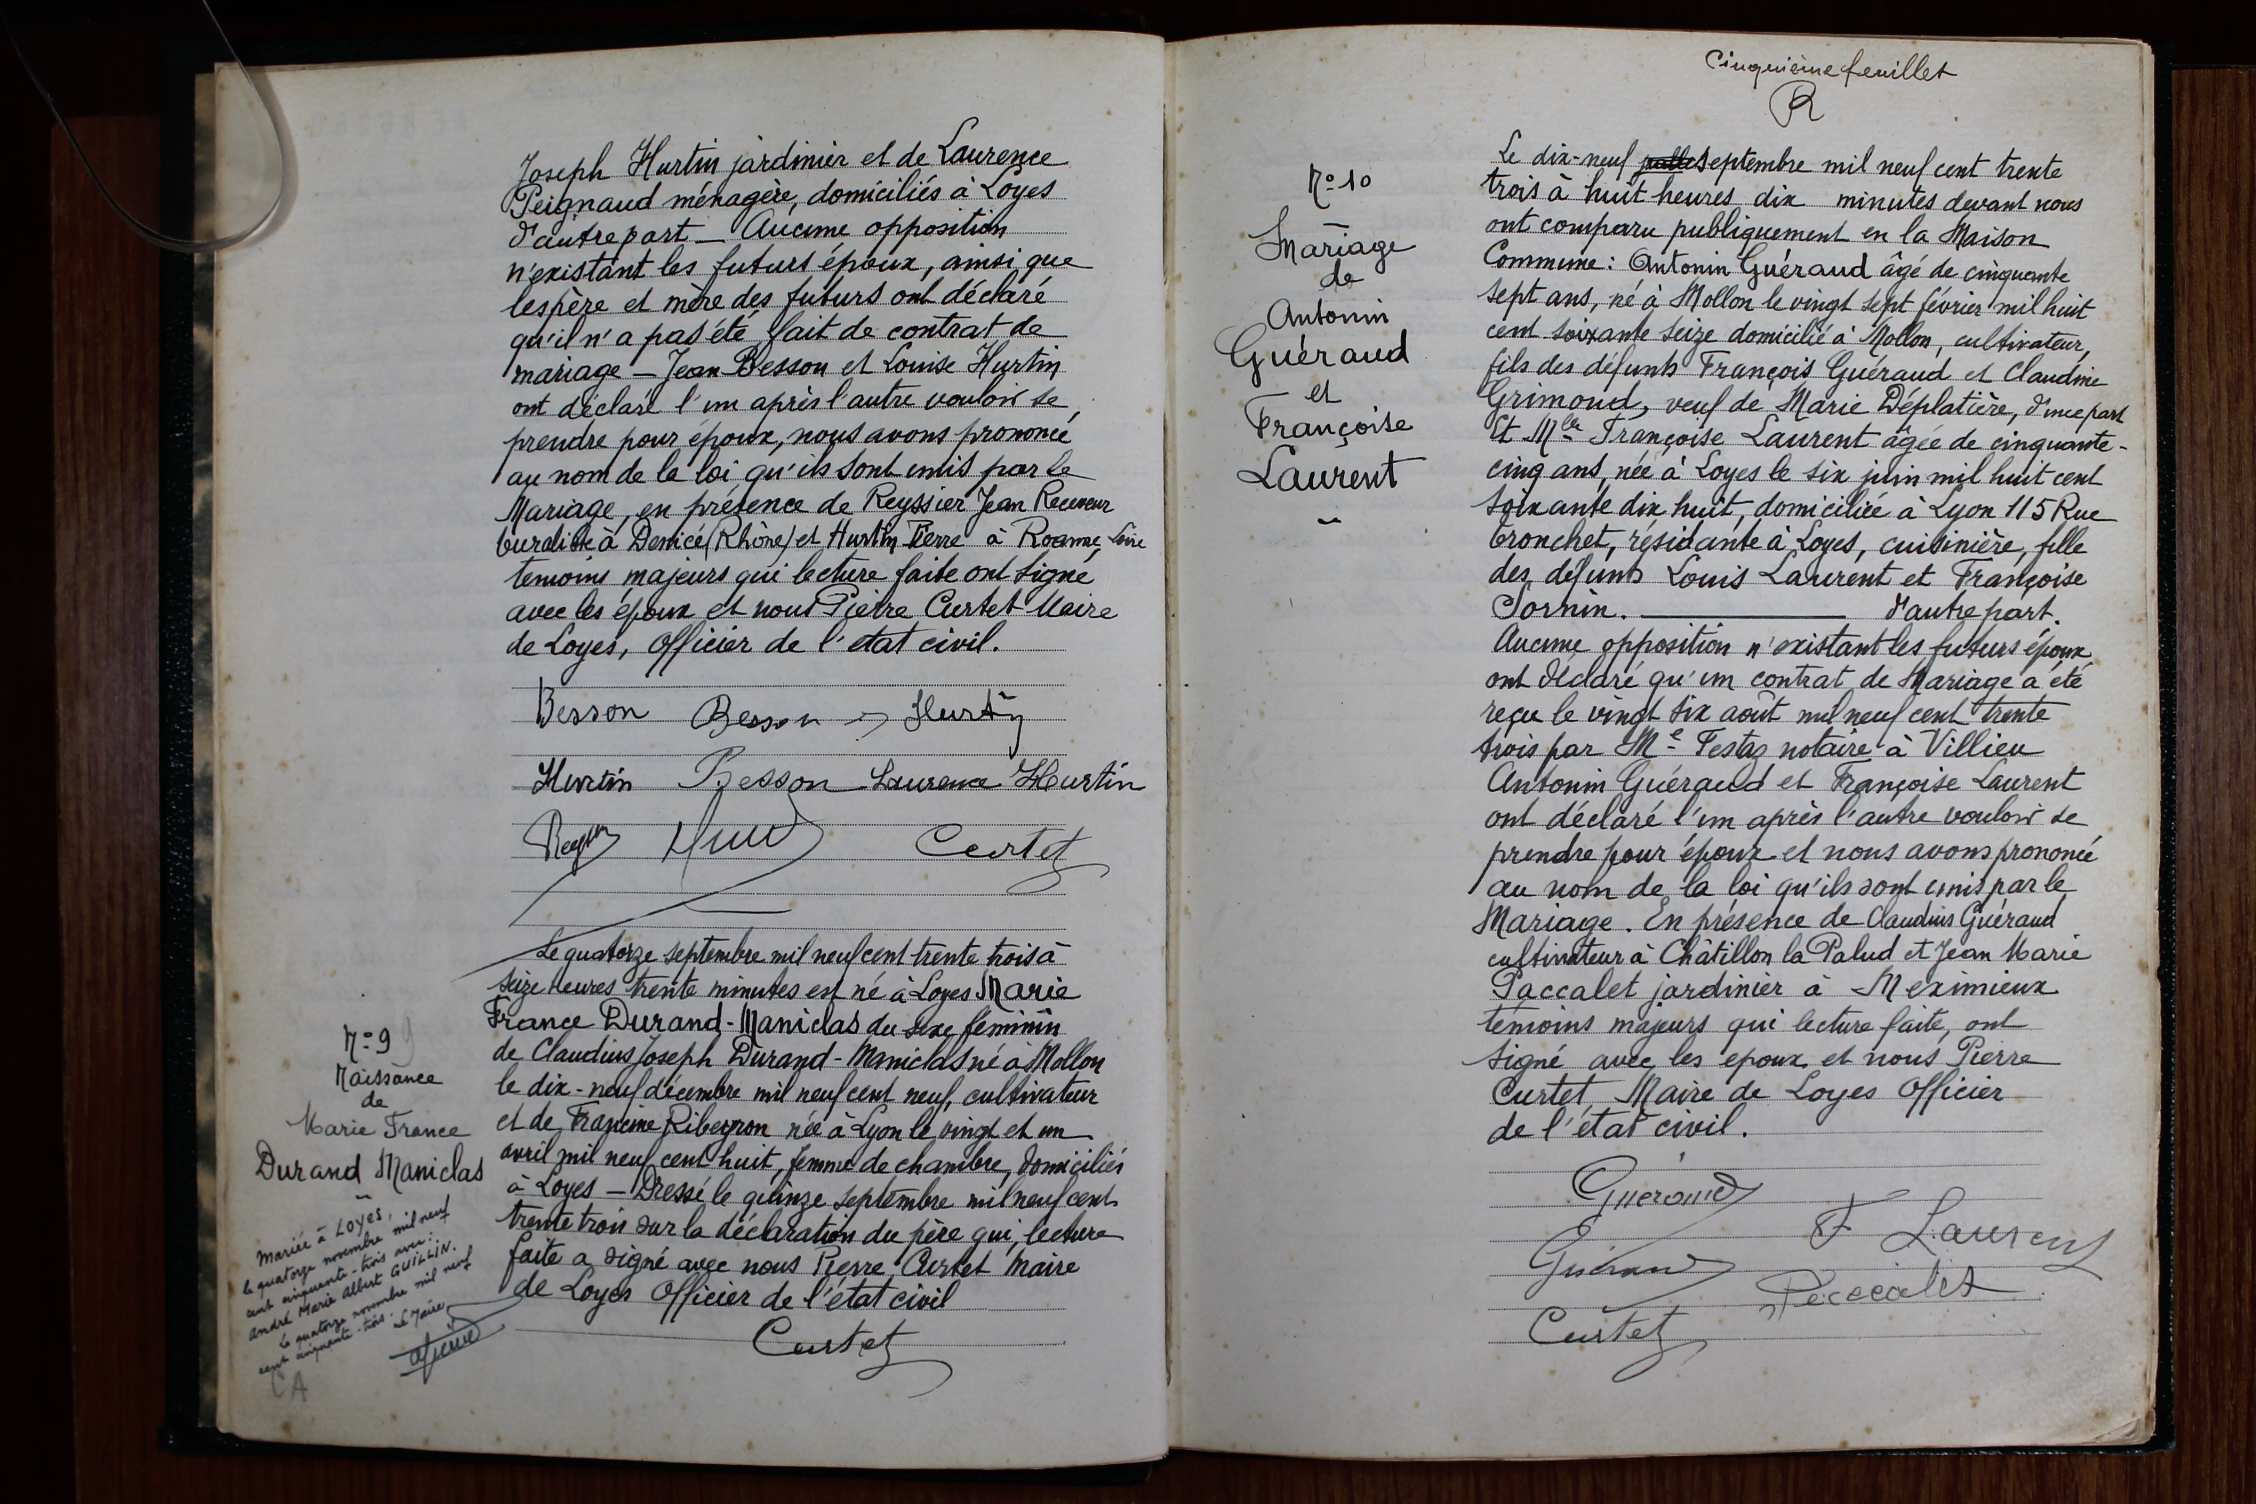 Joseph Hurtin jardinier et de Laurence
Peignaud ménagère, domiciliés à Loyes
d'autre part _ Aucune opposition
n'existant les futurs époux, ainsi que
les père et mère des futurs ont déclaré
qu'il n'a pas été fait de contrat de
mariage – Jean Besson et Louise Hurtin
ont déclaré l'un après l'autre vouloir se
prendre pour époux, nous avons prononcé
au nom de la loi qu'ils sont unis par le
Mariage, en présence de Reyssier Jean Receveur
buraliste à Denicé (Rhône) et Hurtin Pierre à Roanne, Loire
temoins majeurs qui lecture faite ont signé
avec les époux et nous Pierre Curtet Maire
de Loyes, Officier de l'état civil.
Besson Besson Hurtin
Hurtin Besson Laurence Hurtin
Curtet
N° 9 9
Naissance
de
Marie France
Durand Maniclas
Mariée à LOYES,
le quatorze novembre mil neuf
cent cinquante-trois avec:
André Marie Albert GUILLIN.
Le quatorze novembre mil neuf
cent cinquante-trois. Le Maire
CA
Le quatorze septembre mil neuf cent trente trois à
seize heures trente minutes est né à Loyes Marie
France Durand-Maniclas du sexe féminin
de Claudius Joseph Durand-Maniclas né à Mollon
le dix-neuf décembre mil neuf cent neuf, cultivateur
et de Francine Ribeyron née à Lyon le vingt et un
avril mil neuf cent huit, femme de chambre, domiciliés
à Loyes – Dressé le quinze septembre mil neuf cent
trente trois sur la déclaration du père qui, lecture
faite a signé avec nous Pierre Curtet Maire
de Loyes Officier de l'état civil
Curtet
Cinquième feuillet
R
N° 10
Mariage
de
Antonin
Guéraud
et
Françoise
Laurent
Le dix-neuf septembre mil neuf cent trente
trois à huit heures dix minutes devant nous
ont comparu publiquement en la Maison
Commune: Antonin Guéraud âgé de cinquante
sept ans, né à Mollon le vingt sept février mil huit
cent soixante seize domicilié à Mollon, cultivateur,
fils des défunts François Guéraud et Claudine
Grimoud, veuf de Marie Déplatière, d'une part
Et Mlle Françoise Laurent âgée de cinquante-
cinq ans, née à Loyes le six juin mil huit cent
soixante dix huit, domiciliée à Lyon 115 Rue
tronchet, résidante à Loyes, cuisinière, fille
des defunts Louis Laurent et Françoise
Sornin. d'autre part.
Aucune opposition n'existant les futurs époux
ont déclaré qu'un contrat de Mariage a été
reçu le vingt six août mil neuf cent trente
trois par Me Festaz notaire à Villieu
Antonin Guéraud et Françoise Laurent
ont déclaré l'un après l'autre vouloir se
prendre pour époux et nous avons prononcé
au nom de la loi qu'ils sont unis par le
Mariage. En présence de Claudius Guéraud
cultivateur à Châtillon la Palud et Jean Marie
Paccalet jardinier à Meximieux
témoins majeurs qui lecture faite, ont
signé avec les epoux et nous Pierre
Curtet, Maire de Loyes Officier
de l'état civil.
Guéraud
F Laurent
Guéraud
Paccalet
Curtet